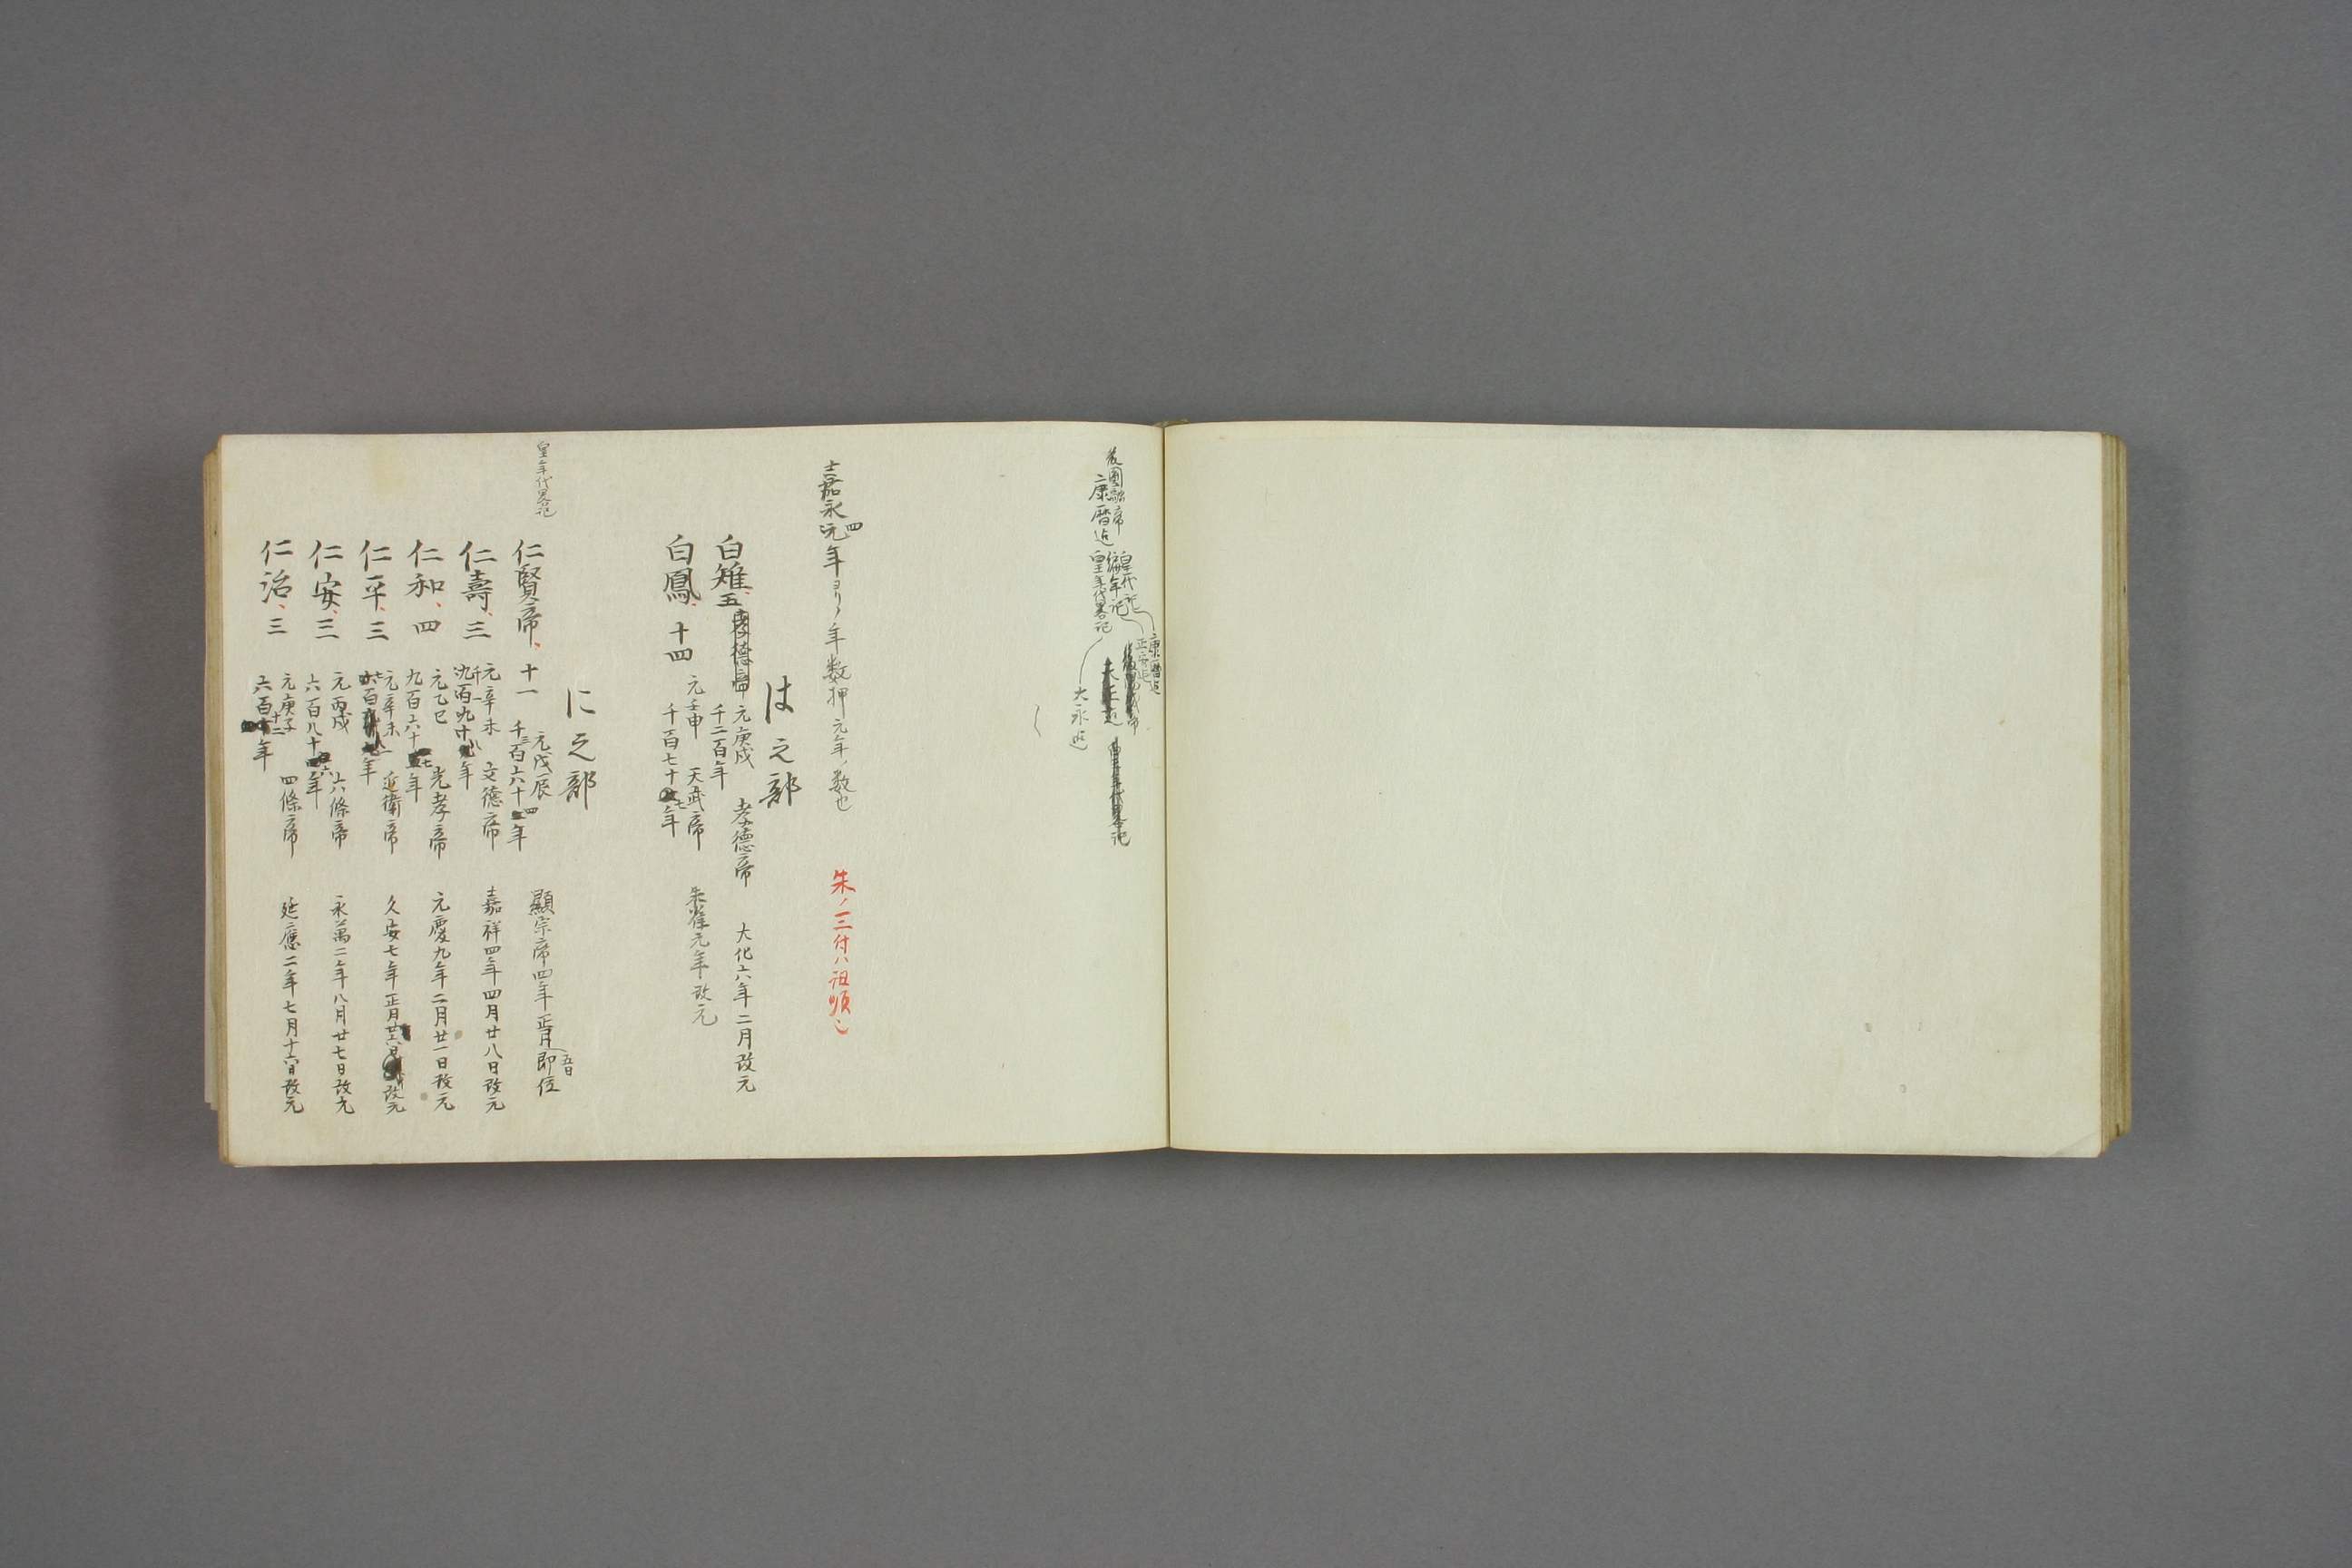 後圓融帝
康暦迄
皇代記
編年記
皇年代畧記
康暦迄
大永迄
嘉永四元年ヨリノ年数押元年ノ数也
朱ノ三付ハ沮順
は之部
白雉、五 孝德帝 元庚戌 千二百年 孝德帝 大化六年二月改元
白鳳、十四 元壬申 千百七十七年 天武帝 朱雀元年改元
に之部
皇年代畧記
仁賢帝、十一 元戊辰 千三百六十四年 顯宗帝四年正月五日即位
仁壽、三 元辛未 千一年 文德帝 嘉祥四年四月廿八日改元
仁和、四 元乙巳 九百六十七年 光孝帝 元慶九年二月廿一日改元
仁平、三 元辛未 七百一年 近衛帝 久安七年正月廿六日改元
仁安、三 元丙戌 六百八十六年 六條帝 永萬二年八月廿七日改元
仁治、三 元庚子 六百十二年 四條帝 延應二年七月十六日改元